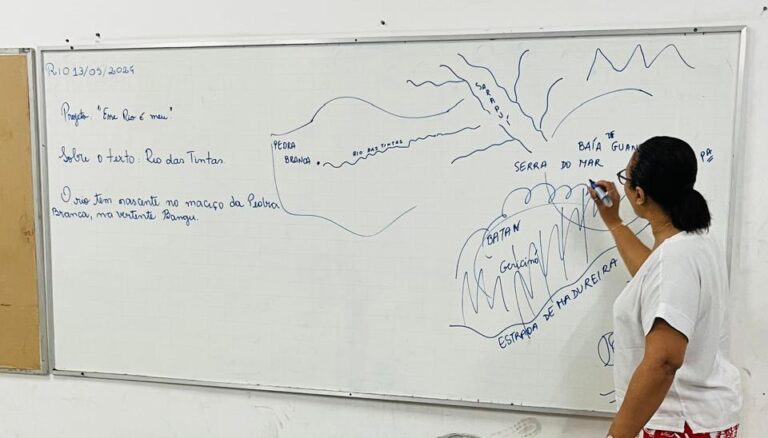 RIO 13/05/2024
Projeto: "Esse Rio é meu"
Sobre o texto: Rio das Tintas.
O rio têm nascente no maciço da Pedra
Branca, na vertente Bangu.
PEDRA
BRANCA
RIO DAS TINTAS
SARAPUÍ
BAÍA DE GUAN
SERRA DO MAR
BATAN
Gericinó
ESTRADA DE MADUREIRA